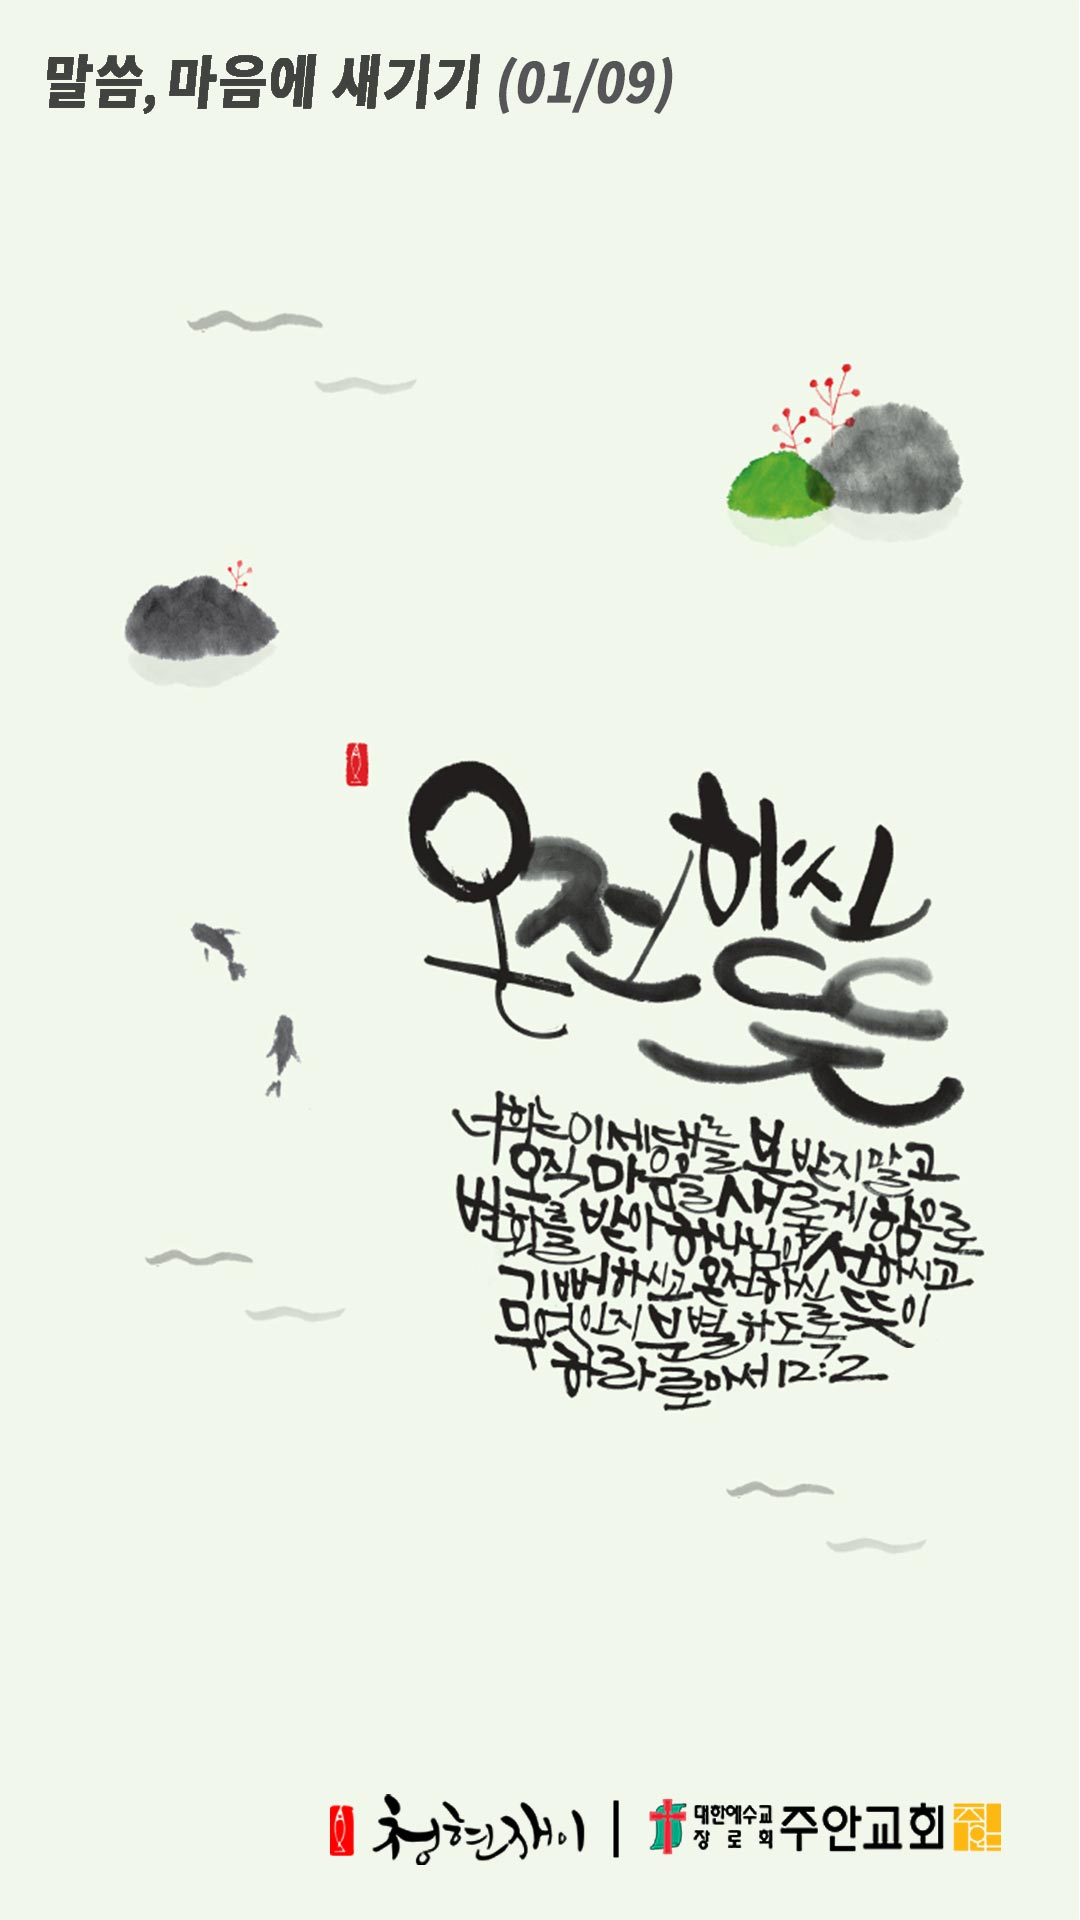 말씀, 마음에 새기기 (01/09)
온전하신
뜻
너희는 이 세대를 본받지 말고
오직 마음을 새롭게 함으로
변화를 받아 하나님의 선하시고
기뻐하시고 온전하신 뜻이
무엇인지 분별하도록
하라 로마서 12:2
청현재이
대한예수교
장로회
주안교회